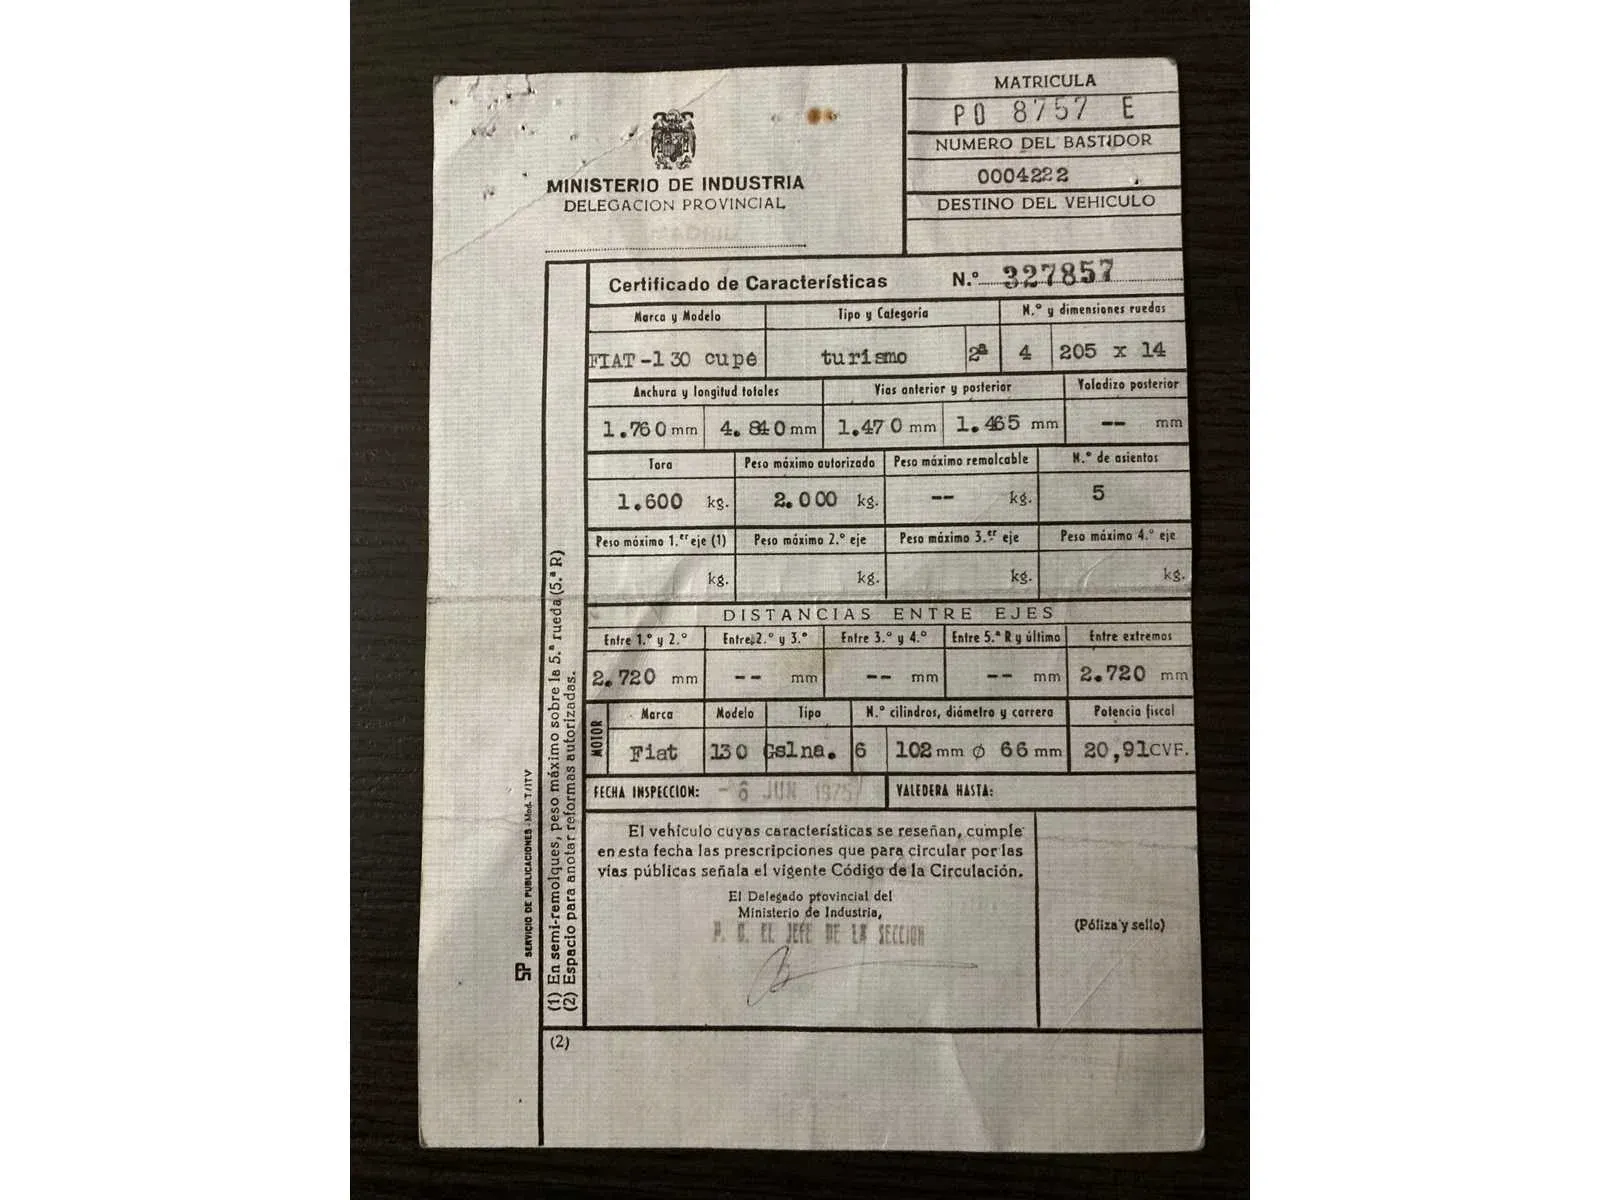 MATRICULA
PO 8757 E
NUMERO DEL BASTIDOR
0004222
DESTINO DEL VEHICULO
MINISTERIO DE INDUSTRIA
DELEGACION PROVINCIAL
Certificado de Características N.º 327857
Marca y Modelo Tipo y Categoría N.º y dimensiones ruedas
FIAT-130 cupe turismo 2ª 4 205 x 14
Anchura y longitud totales Vías anterior y posterior Voladizo posterior
1.760 mm 4.840 mm 1.470 mm 1.465 mm -- mm
Tara Peso máximo autorizado Peso máximo remolcable N.º de asientos
1.600 kg. 2.000 kg. -- kg. 5
Peso máximo 1.er eje (1) Peso máximo 2.º eje Peso máximo 3.er eje Peso máximo 4.º eje
kg. kg. kg. kg.
DISTANCIAS ENTRE EJES
Entre 1.º y 2.º Entre 2.º y 3.º Entre 3.º y 4.º Entre 5.ª R y último Entre extremos
2.720 mm -- mm -- mm -- mm 2.720 mm
MOTOR
Marca Modelo Tipo N.º cilindros, diámetro y carrera Potencia fiscal
Fiat 130 Gslna. 6 102 mm ø 66 mm 20,91 CVF.
FECHA INSPECCION: - 6 JUN 1975 VALEDERA HASTA:
El vehículo cuyas características se reseñan, cumple
en esta fecha las prescripciones que para circular por las
vías públicas señala el vigente Código de la Circulación.
El Delegado provincial del
Ministerio de Industria,
P. D. EL JEFE DE LA SECCION
(Póliza y sello)
(1) En semi-remolques, peso máximo sobre la 5.ª rueda (5.ª R)
(2) Espacio para anotar reformas autorizadas.
SERVICIO DE PUBLICACIONES - Mod. T/ITV
(2)